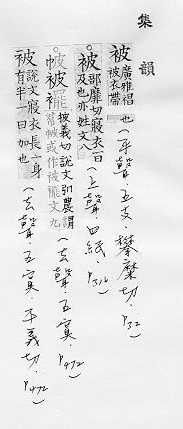 集韻
被 廣雅倡被衣帶也(平聲.五支.攀糜切.P32)
被 部靡切寢衣一曰及也亦姓文八(上聲.四紙.P316)
帔被襬 披義切說文引農謂帬帔或作被襬文九(去聲.五寘.P472)
被 說文寢衣長一身有半一曰加也(去聲.五寘.平義切.P472)